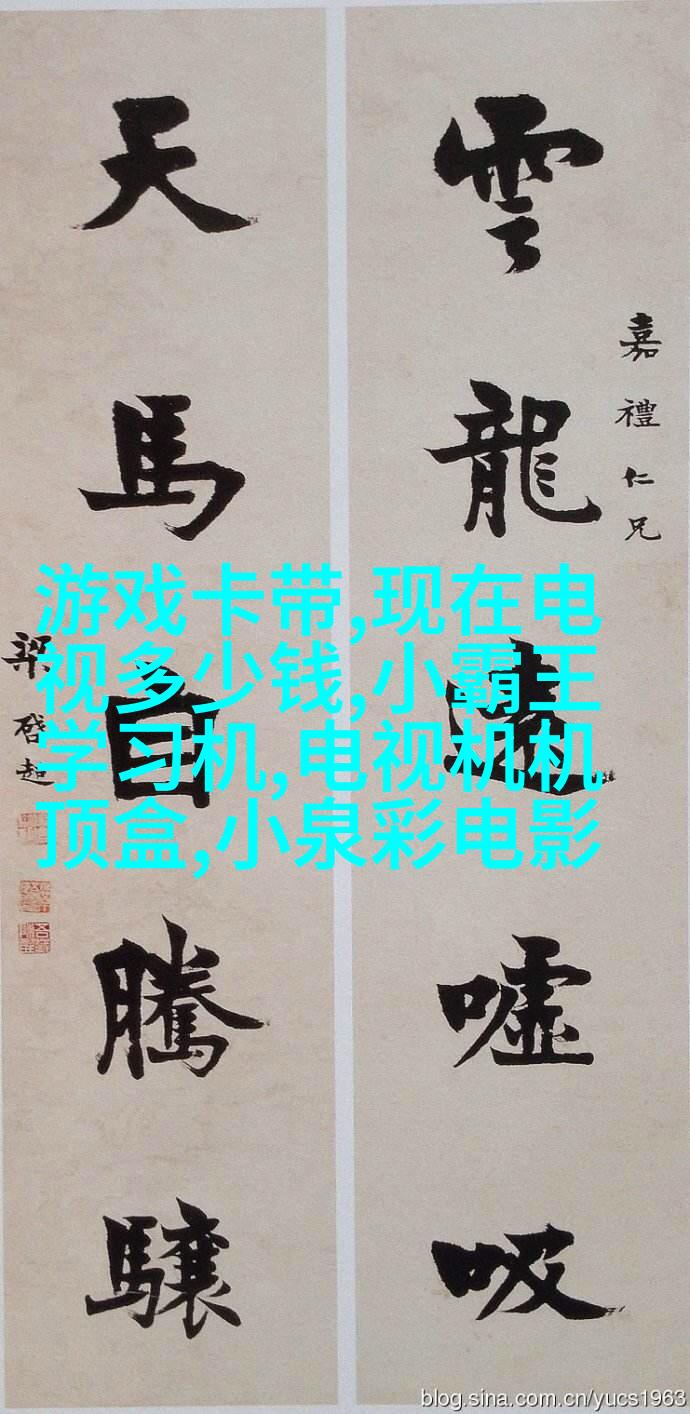 雲龍遠噓吸
嘉禮仁兄
天馬自騰驤
梁啓超
游戏卡带,现在电
视多少钱,小霸王
学习机,电视机机
顶盒,小泉彩电影
blog.sina.com.cn/yucs1963